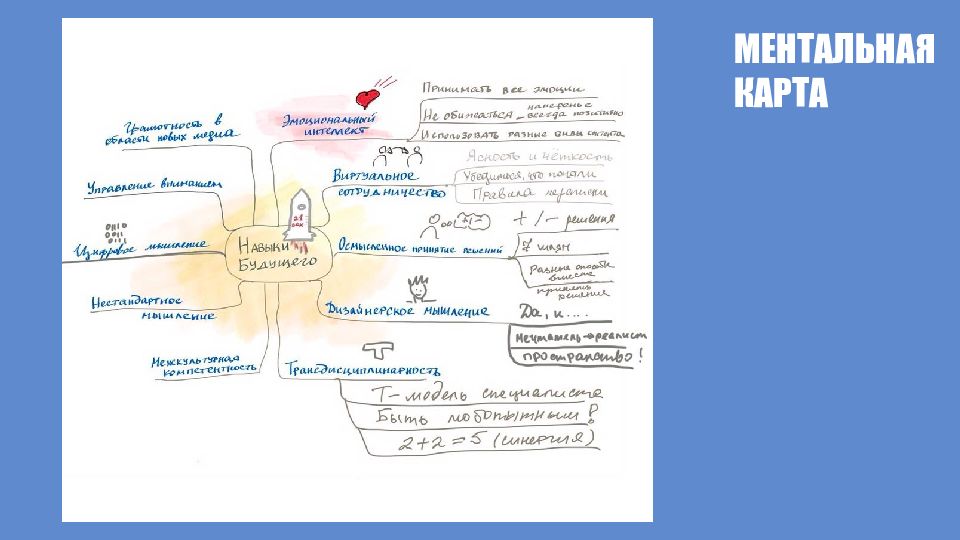 МЕНТАЛЬНАЯ
КАРТА
Навыки
Будущего
21
век
Эмоциональный
интеллект
Принимать все эмоции
Не обижаться – намеренье всегда позитивно
Использовать разные виды
Виртуальное
сотрудничество
Ясность и чёткость
Убедиться, что поняли
Правила переписки
Осмысленное принятие решений
+/- решения
7 шляп
Разные способы
принять
решения
Дизайнерское мышление
Да, и....
Мечтатель → реалист
пространство!
Трансдисциплинарность
Т – модель специалиста
Быть любопытным!
2+2=5 (синергия)
Межкультурная
компетентность
Нестандартное
мышление
Цифровое мышление
Управление вниманием
Грамотность в
области новых медиа